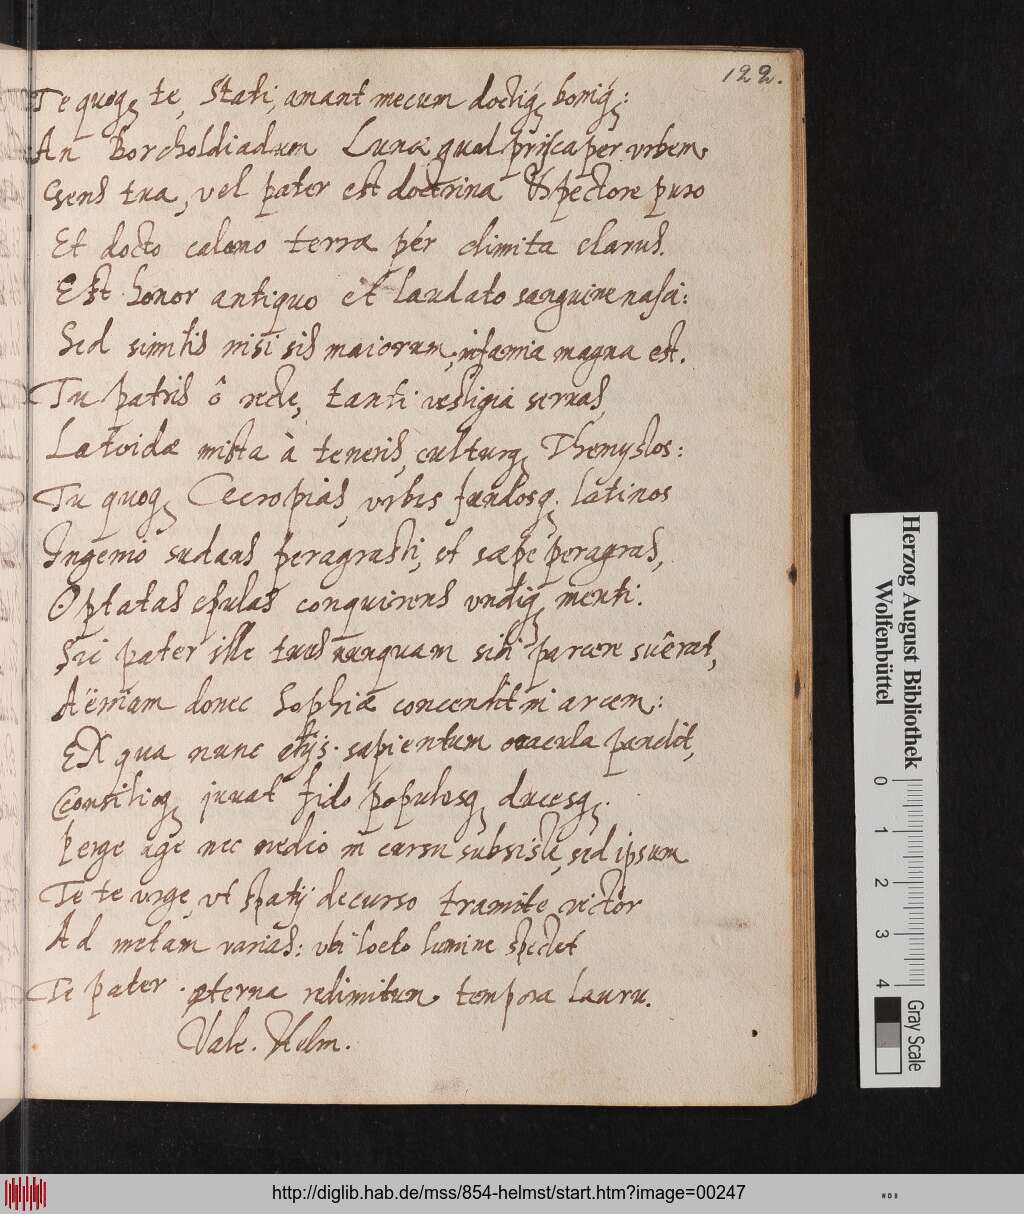 122.
Te quoq, te, Stati, amant mecum doctiq, boniq:
An Borcholdiadum Lunæ quod prisca per vrbem
Gens tua, vel pater est doctrina & pectore puro
Et docto calamo terræ pér climita clarus.
Est honor antiquo et laudato sanguine nasci:
Sed similis nisi sis maiorum, infamia magna est.
Tu patris ô recte, tanti vestigia seruas,
Latoidæ mista à teneris, culturq, Themystos:
Tu quoq, Cecropias, vrbes fundosq, latinos
Ingenio sudans peragrasti, et sæpe peragras,
Optatas epulas conquirens vndiq, menti.
Sic pater ille tuus nunquam sibi parcere suêrat,
Aëriam donec Sophiæ concendit in arcem:
Ex qua nunc sapientum oracula pandit,
Consilioq, juuat fido populosq, ducesq.
Perge age nec medio in cursu subsiste, sed ipsum
Te te vrge, vt spatij decurso tramite victor
Ad metam varias: vbi loeto lumine spectet
Te pater æterna redimitum tempora lauru.
Vale. Helm.
Herzog August Bibliothek
Wolfenbüttel
0 1 2 3 4
Gray Scale
http://diglib.hab.de/mss/854-helmst/start.htm?image=00247
WDB